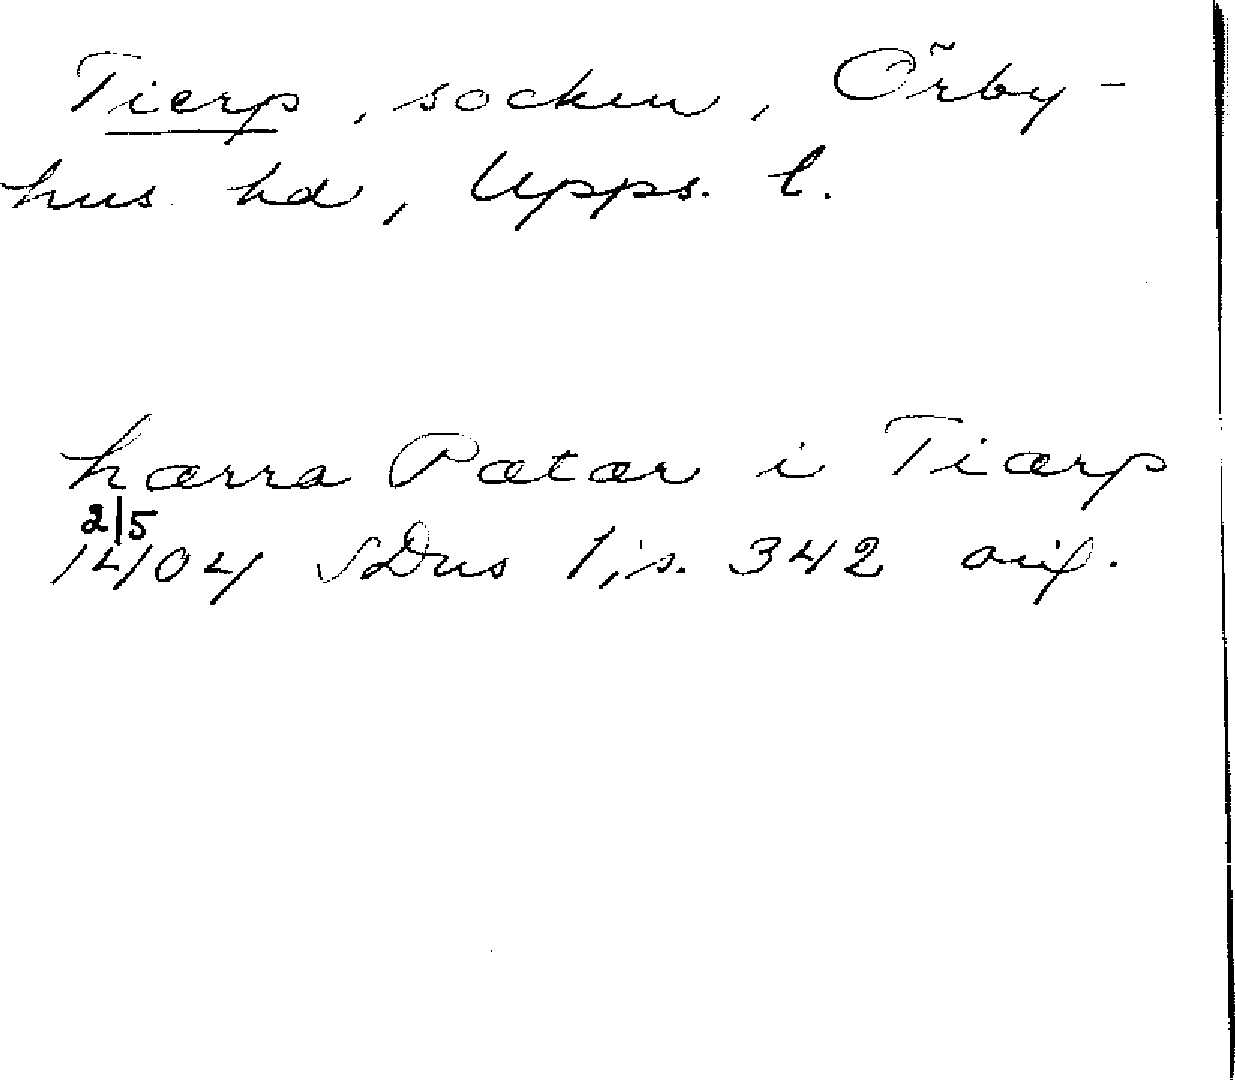 Tierp, socken, Örby-
hus hd, Upps. l.
hærra Pætær i Tiærp
2/5
1404 SDns 1, s. 342 orig.